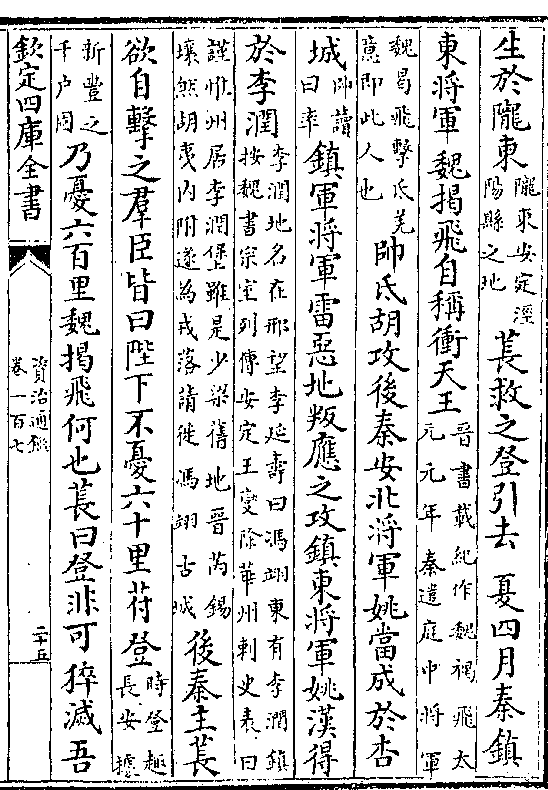 生於隴東隴東安定涇陽縣之地萇救之登引去 夏四月秦鎮
東將軍魏揭飛自稱衝天王晉書載紀作魏褐飛太元元年秦遣庭中將軍
魏曷飛擊氐羌意即此人也帥氐胡攻後秦安北將軍姚當成於杏
城帥讀曰率鎮軍將軍雷惡地叛應之攻鎮東將軍姚漢得
於李潤李潤地名在邢望李延壽曰馮翊東有李潤鎮按魏書宗室列傳安定王燮除華州刺史表曰
謹惟州居李潤堡雖是少梁舊地晉芮錫壤然胡夷内附遂為戎落請徙馮翊古城後秦主萇
欲自擊之羣臣皆曰陛下不憂六十里苻登時登趣長安據
新豐之千户固乃憂六百里魏揭飛何也萇曰登非可猝滅吾
欽定四庫全書
資治通鑑
卷一百七
二十五